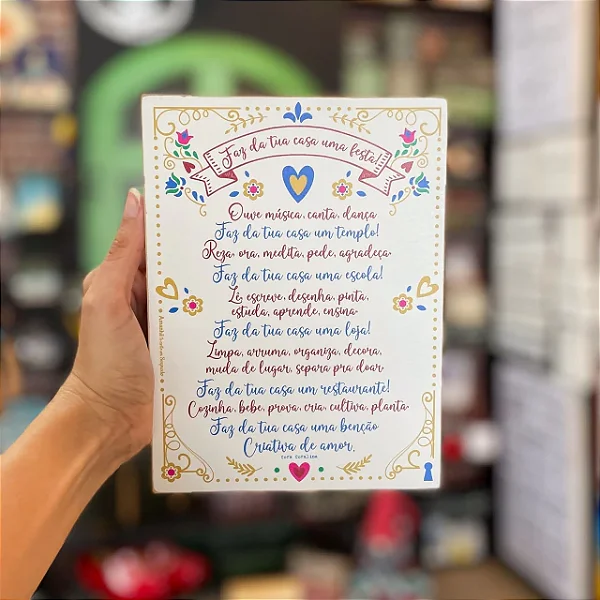 Faz da tua casa uma festa!
Ouve música, canta, dança
Faz da tua casa um templo!
Reza, ora, medita, pede, agradeça.
Faz da tua casa uma escola!
Lê, escreve, desenha, pinta,
estuda, aprende, ensina.
Faz da tua casa uma loja!
Limpa, arruma, organiza, decora,
muda de lugar, separa pra doar.
Faz da tua casa um restaurante!
Cozinha, bebe, prova, cria, cultiva, planta.
Faz da tua casa uma benção
Criativa de amor.
Cora Coralina